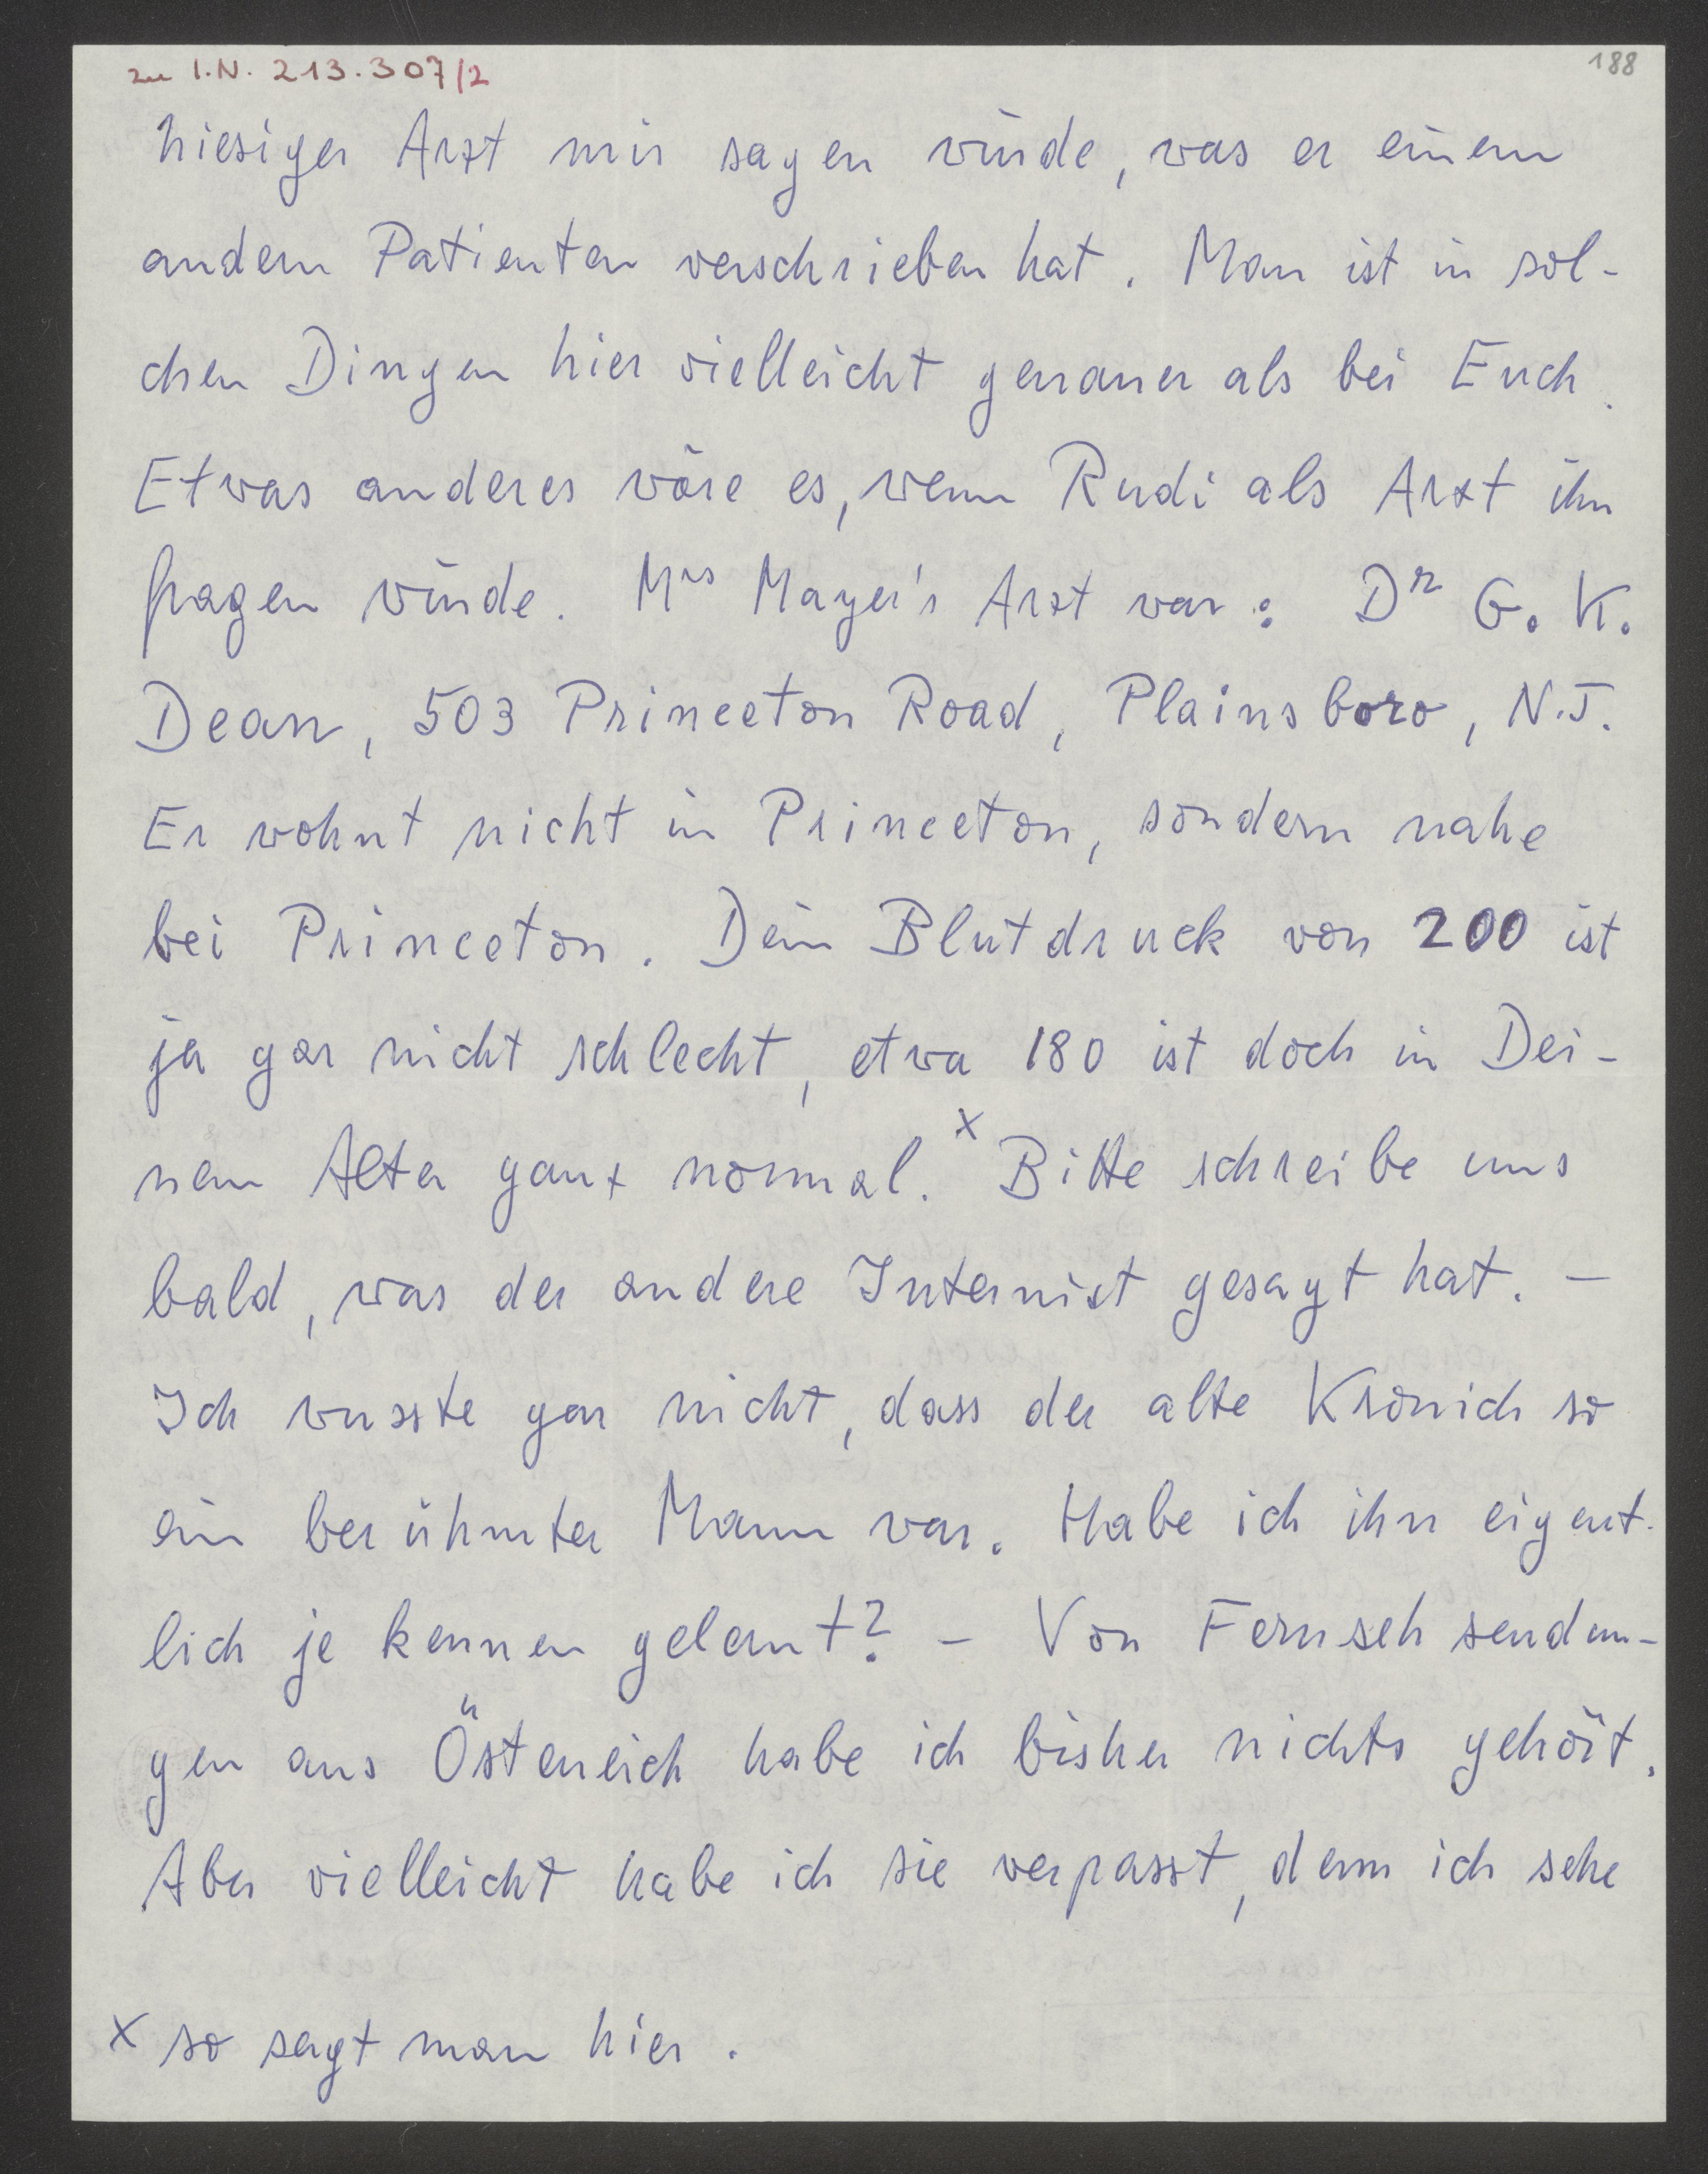 zu I.N. 213.307/2
188
hiesiger Arzt mir sagen würde, was er einem
andern Patienten verschrieben hat. Man ist in sol-
chen Dingen hier vielleicht genauer als bei Euch.
Etwas anderes wäre es, wenn Rudi als Arzt ihn
fragen würde. Mrs Mayer's Arzt war: Dr G. K.
Dean, 503 Princeton Road, Plainsboro, N.J.
Er wohnt nicht in Princeton, sondern nahe
bei Princeton. Dein Blutdruck von 200 ist
ja gar nicht schlecht, etwa 180 ist doch in Dei-
nem Alter ganz normal. x Bitte schreibe uns
bald, was der andere Internist gesagt hat. –
Ich wusste gar nicht, dass der alte Kronich so
ein berühmter Mann war. Habe ich ihn eigent-
lich je kennen gelernt? – Von Fernsehsendun-
gen aus Österreich habe ich bisher nichts gehört.
Aber vielleicht habe ich sie verpasst, denn ich sehe
x so sagt man hier.